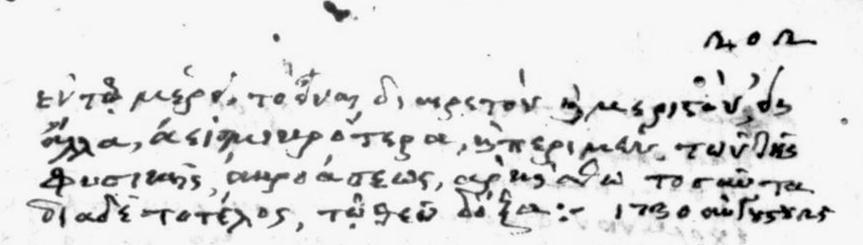 ἐν τῷ μέρει, τὸ εἶναι διαιρετὸν καὶ μεριστὸν, εἰς
ἄλλα, ἀεὶ σμικρότερα, καὶ περὶ μὲν τῶν τῆς
φυσικῆς ἀκροάσεως, ἀρκείσθω τοσαῦτα
διὰ δὲ τὸ τέλος, τῷ θεῷ δόξα :- 1730